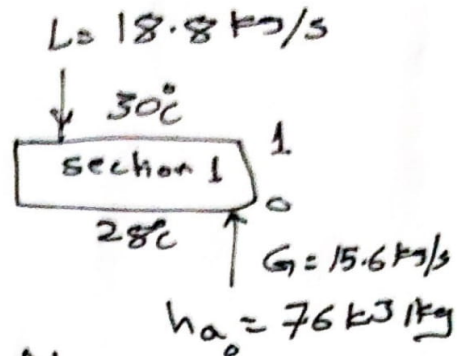 L= 18.8 kg/s
30°C
section 1 1
0
28°C
G = 15.6 kg/s
ha₀ = 76 kJ/kg